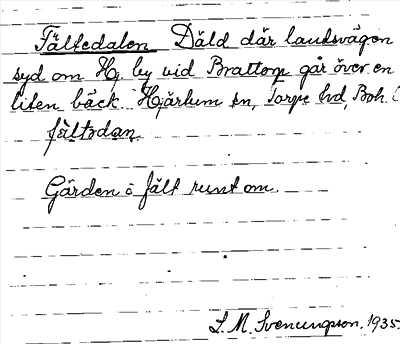 Fältedalen Däld där landsvägen
syd om Hj. by vid Brattorp går över en
liten bäck. Hjärtum sn, Torpe hd, Boh.
fältədan.
Gärden o fält runt om.
S. M. Svenungson. 1935.